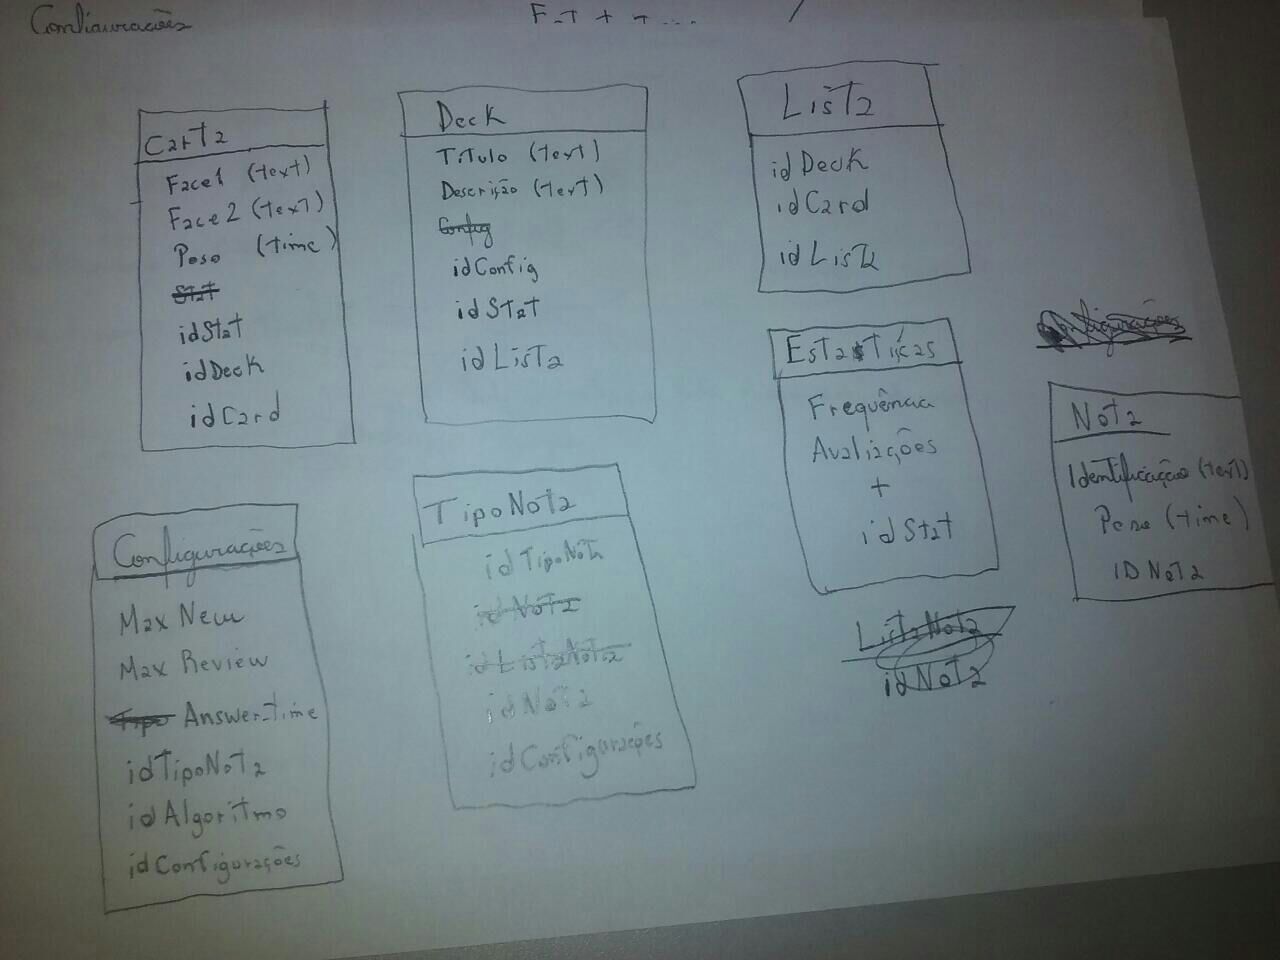 Configurações
Carta
Face1 (text)
Face2 (text)
Peso (time)
Stat
idStat
idDeck
idCard
Deck
Título (text)
Descrição (text)
Config
idConfig
idStat
idLista
Lista
idDeck
idCard
idLista
Estatísticas
Frequência
Avaliações
+
idStat
Configurações
Nota
Identificação (text)
Peso (time)
ID Nota
Configurações
Max New
Max Review
Tipo Answer_time
idTipoNota
idAlgoritmo
idConfigurações
TipoNota
idTipoNota
idNota
idListaNota
idNota
idConfigurações
ListaNota
idNota